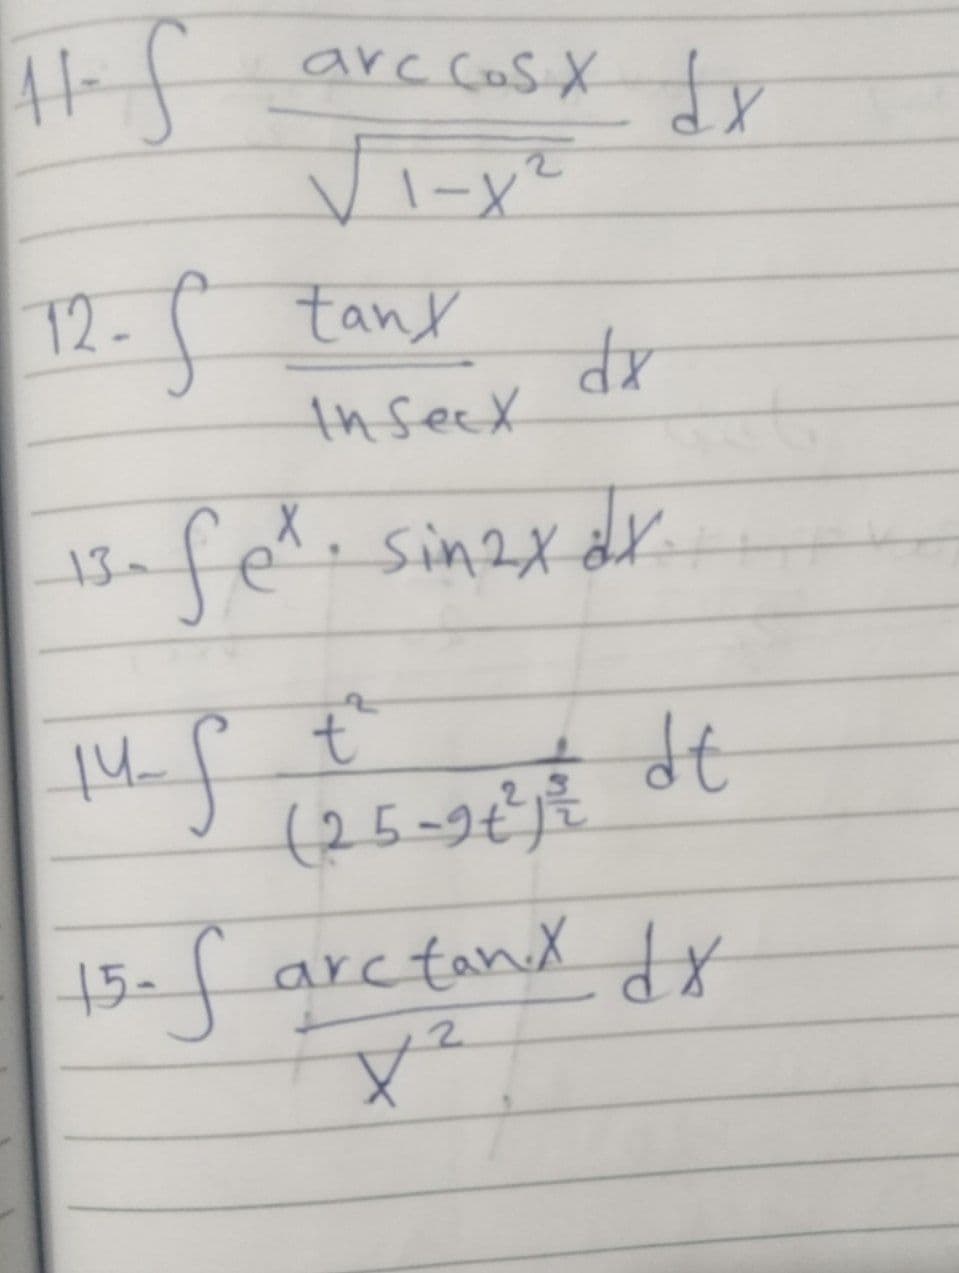 11- ∫ arc cos x / √(1-x²) dx
12- ∫ tanx / ln secx dx
13- ∫ eˣ · sin2x dx
14- ∫ t² / (25-9t²)^(3/2) dt
15- ∫ arc tanx / x² dx